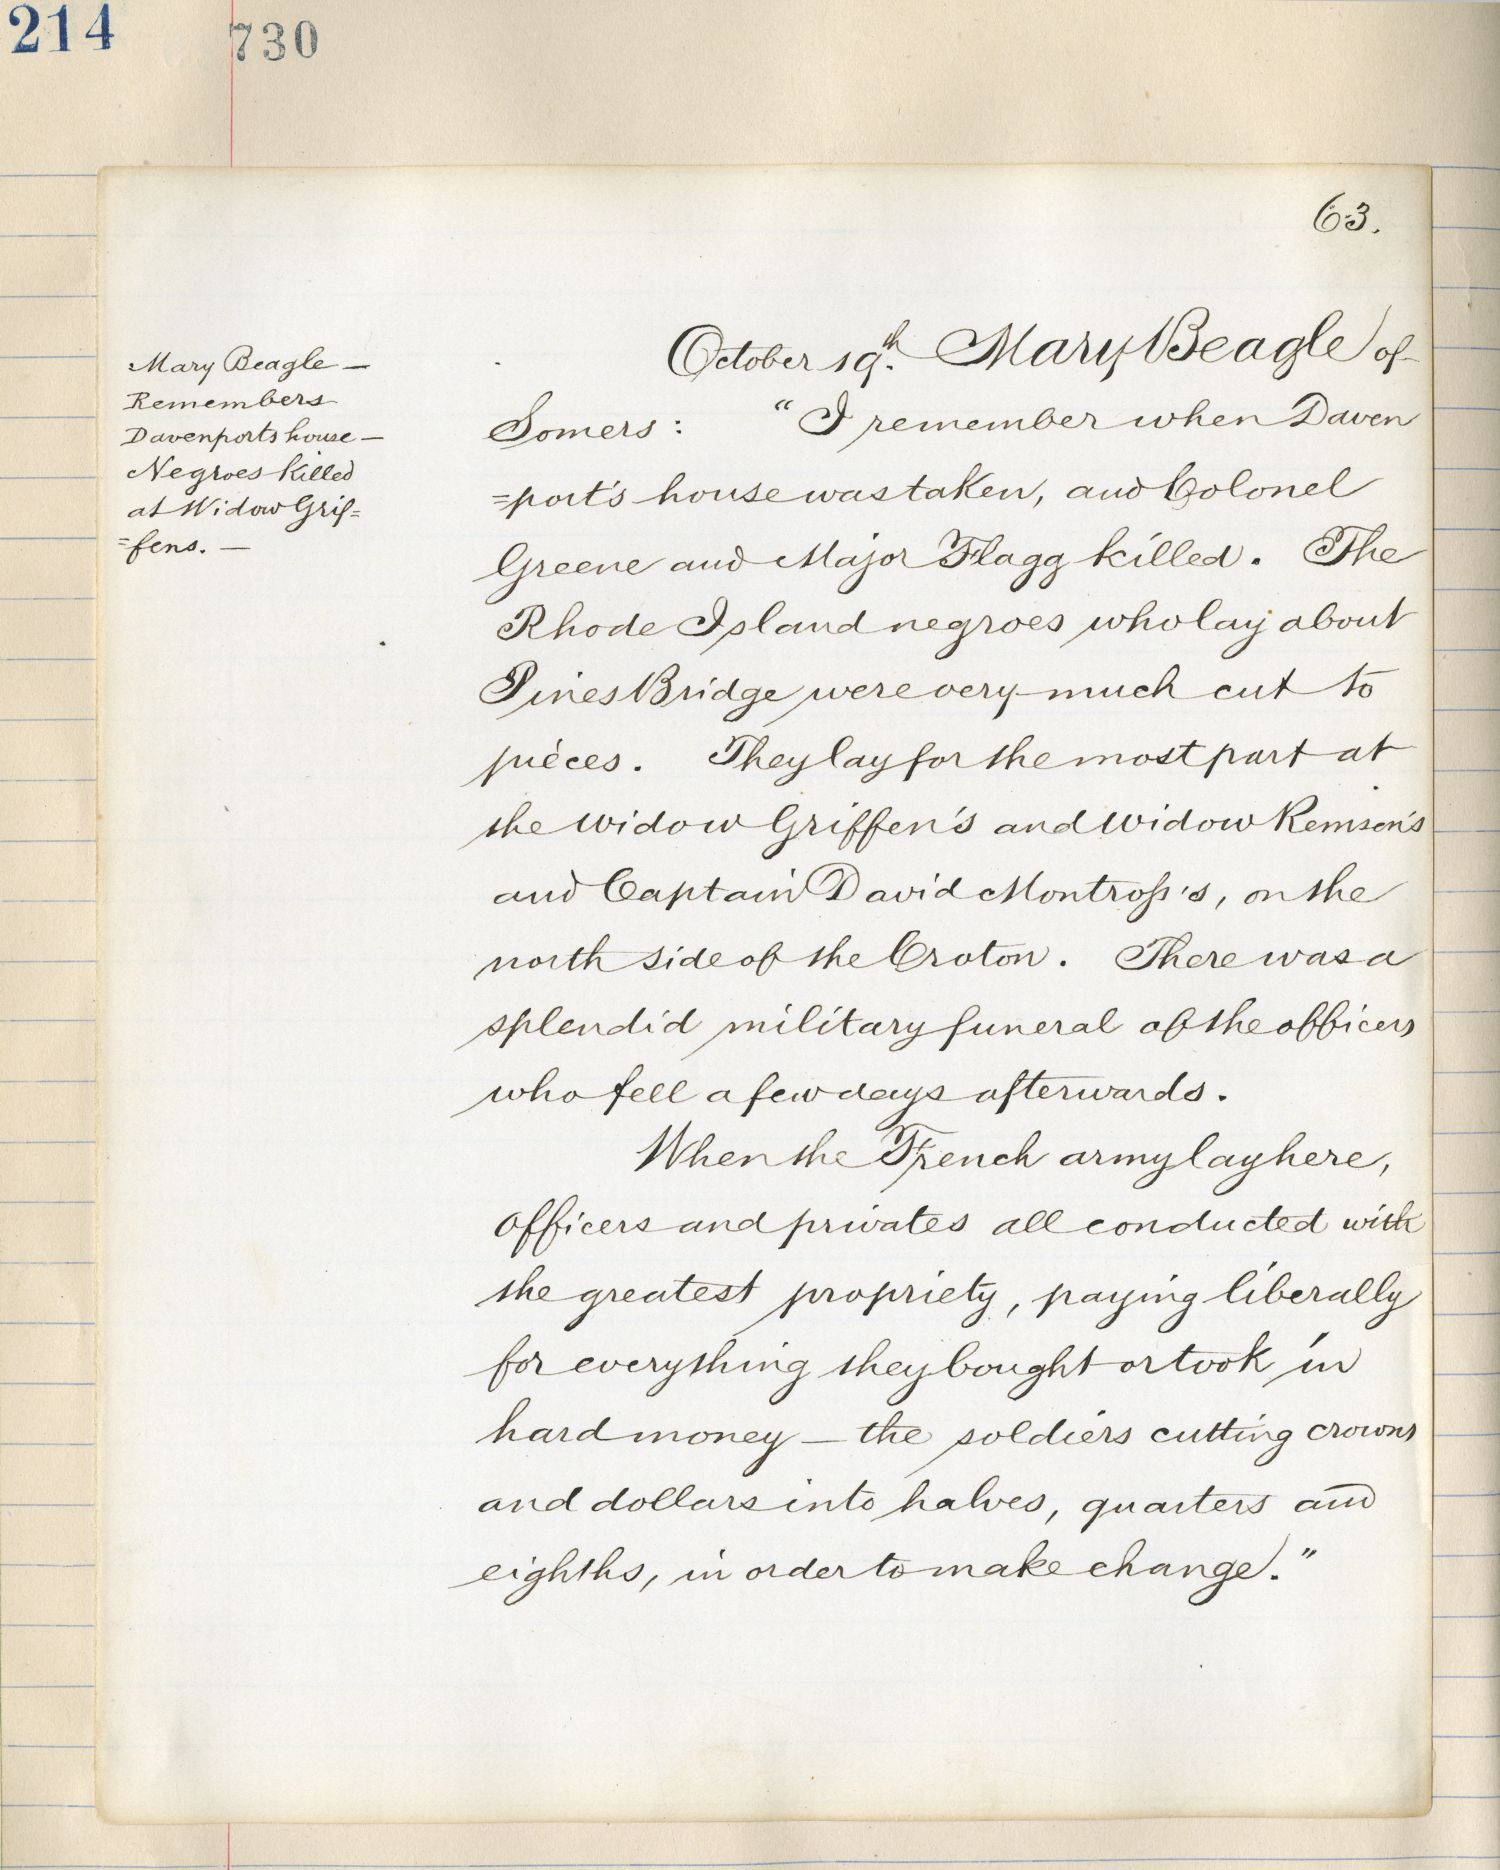 214
730
63.
Mary Beagle —
Remembers
Davenports house —
Negroes killed
at Widow Grif=
=fens. —
October 19th. Mary Beagle of
Somers: "I remember when Daven
=port's house was taken, and Colonel
Greene and Major Flagg killed. The
Rhode Island negroes who lay about
Pines Bridge were very much cut to
pieces. They lay for the most part at
the widow Griffen's and widow Remsen's
and Captain David Montross's, on the
north side of the Croton. There was a
splendid military funeral of the officers
who fell a few days afterwards.
When the French army lay here,
officers and privates all conducted with
the greatest propriety, paying liberally
for everything they bought or took in
hard money — the soldiers cutting crowns
and dollars into halves, quarters and
eighths, in order to make change."